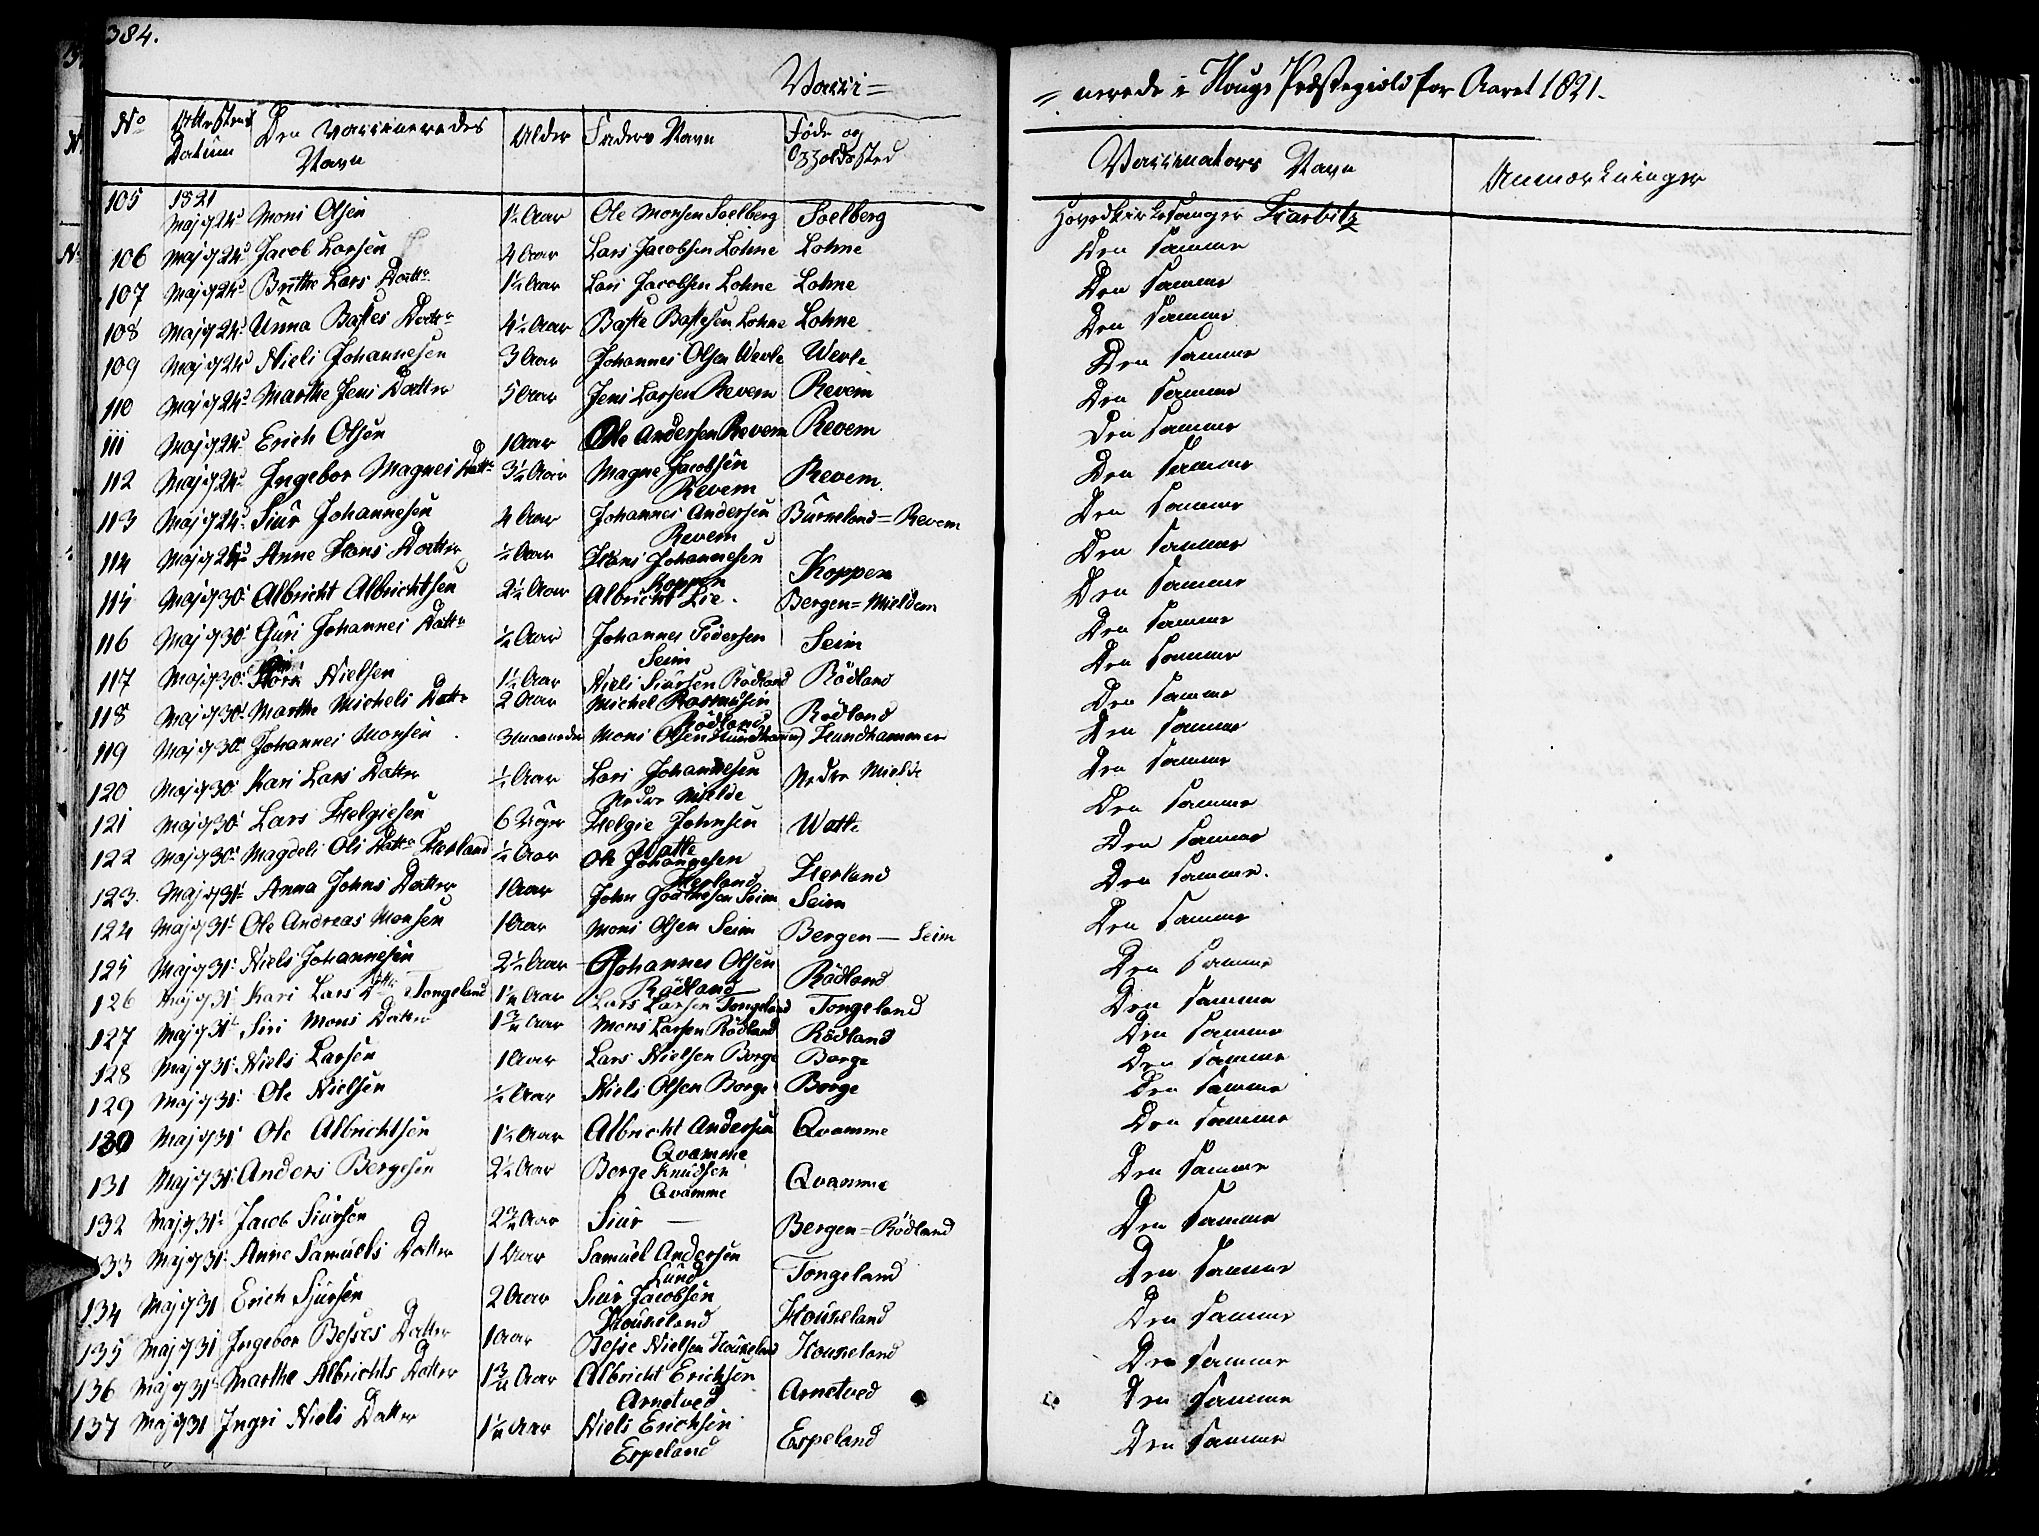 384.
Vacci=
= nerede i Hougs Præstegield for Aaret 1821.
No Attestens Datum Den Vaccineredes Navn Alder Faders Navn Føde og Opholdssted Vaccinators Navn Anmærkninger
105 1821 Maj d 24d Mons Olsen 1½ Aar Ole Monsen Soelberg Soelberg Hovedkirkesanger
106 Maj d 24d Jacob Larsen 4 Aar Lars Jacobsen Lohne Lohne Den samme
107 Maj d 24d Brithe Lars Dattr 1½ Aar Lars Jacobsen Lohne Lohne Den samme
108 Maj d 24d Anna Bastes Dattr 4½ Aar Baste Bastesen Lohne Lohne Den samme
109 Maj d 24d Niels Johannesen 3 Aar Johannes Olsen Werle Werle Den samme
110 Maj d 24d Marthe Jens Datter 5 Aar Jens Larsen Revem Revem Den samme
111 Maj d 24d Erich Olsen 1 Aar Ole Andersen Revem Revem Den samme
112 Maj d 24d Ingebor Magnes Dattr 3½ Aar Magne Jacobsen Revem Revem Den samme
113 Maj d 24d Siur Johannesen 4 Aar Johannes Andersen Revem Burkeland = Revem Den samme
114 Maj d 24d Anne Hans Datter ½ Aar Hans Johannesen Koppen Koppen Den samme
115 Maj d 30t Albricht Albrichtsen 2½ Aar Albricht Lie. Bergen = Mieldem Den samme
116 Maj d 30t Guri Johannes Dattr ½ Aar Johannes Pedersen Seim Seim Den samme
117 Maj d 30t Nielsen 1½ Aar Niels Siursen Rödland Rödland Den samme
118 Maj d 30t Marthe Michels Dattr 2 Aar Michel Rasmusen Rödland Rödland Den samme
119 Maj d 30t Johannes Monsen 3 Maaneder Mons Olsen Hundhammer Hundhammer Den samme
120 Maj d 30 Kari Lars Datter ½ Aar Lars Johannesen Nedre Mielde Nedre Mielde Den samme
121 Maj d 30t Lars Helgiesen 6 Uger Helgie Johnsen Watte Watte Den samme
122 Maj d 30t Magdeli Ols Dattr Herland ½ Aar Ole Johannesen Herland Herland Den samme
123. Maj d 31t Anna Johns Datter 1 Aar John Seim Seim Den samme.
124 Maj d 31t Ole Andreas Monsen 1 Aar Mons Olsen Seim Bergen — Seim Den samme
125 Maj d 31t Niels Johannesen 2½ Aar Johannes Olsen Rödland Rödland Den samme
126 Maj d 31t Kari Lars Dttr Tongeland 1¼ Aar Lars Larsen Tongeland Tongeland Den samme
127 Maj d 31t Siri Mons Datter 1¾ Aar Mons Larsen Rödland Rödland Den samme
128 Maj d 31t Niels Larsen 1 Aar Lars Nielsen Borge Borge Den samme
129 Maj d 31t Ole Nielsen ½ Aar Niels Olsen Borge Borge Den samme
130 Maj d 31t Ole Albrichtsen 1½ Aar Albricht Andersen Qvamme Qvamme Den samme
131 Maj d 31t Anders Bergesen 2½ Aar Berge Knudsen Qvamme Qvamme Den samme
132 Maj d 31t Jacob Siursen 2¾ Aar Siur — Bergen = Rödland Den samme
133 Maj d 31t Anne Samuels Datter 1 Aar Samuel Andersen Lund Tongeland Den samme
134 Maj d 31 Erich Sjursen 2 Aar Siur Jacobsen Houkeland Houkeland Den samme
135 Maj d 31 Ingebor Besses Datter 1 Aar Besse Nielsen Houkeland Houkeland Den samme
136 Maj d 31t Marthe Albrichts Datter 1¾ Aar Albricht Erichsen Arnetved Arnetved Den samme
137 Maj d 31 Ingri Niels Datter 1¼ Aar Niels Erichsen Espeland Espeland Den samme